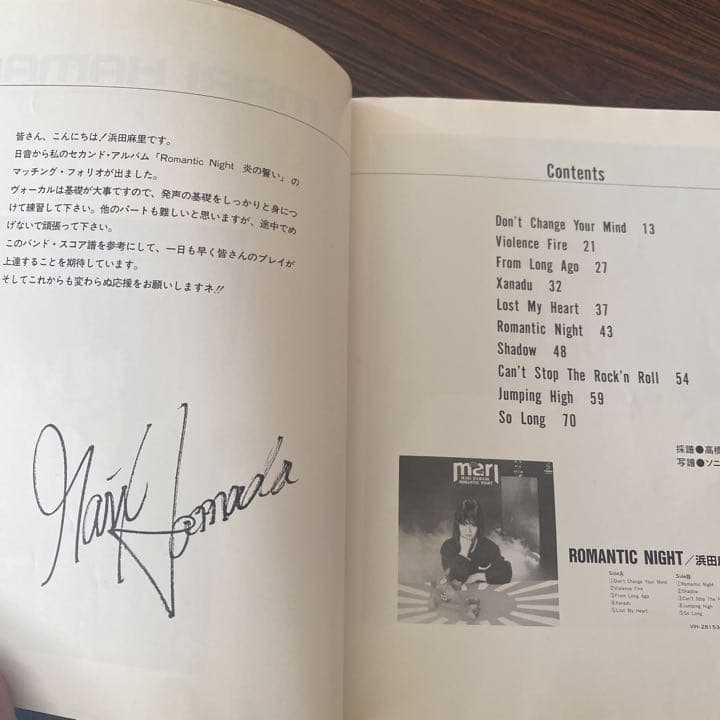 皆さん、こんにちは！浜田麻里です。
日音から私のセカンド・アルバム「Romantic Night 炎の誓い」の
マッチング・フォリオが出ました。
ヴォーカルは基礎が大事ですので、発声の基礎をしっかりと身につ
けて練習して下さい。他のパートも難しいと思いますが、途中でめ
げないで頑張って下さい。
このバンド・スコア譜を参考にして、一日も早く皆さんのプレイが
上達することを期待しています。
そしてこれからも変わらぬ応援をお願いしますネ!!
Mari Hamada
Contents
Don't Change Your Mind 13
Violence Fire 21
From Long Ago 27
Xanadu 32
Lost My Heart 37
Romantic Night 43
Shadow 48
Can't Stop The Rock'n Roll 54
Jumping High 59
So Long 70
採譜●高橋
写譜●ソニ
mari
MARI HAMADA
ROMANTIC NIGHT
ROMANTIC NIGHT／浜田
Side A
①Don't Change Your Mind
②Violence Fire
③From Long Ago
④Xanadu
⑤Lost My Heart
Side B
①Romantic Night
②Shadow
③Can't Stop The
④Jumping High
⑤So Long
VIH-2815